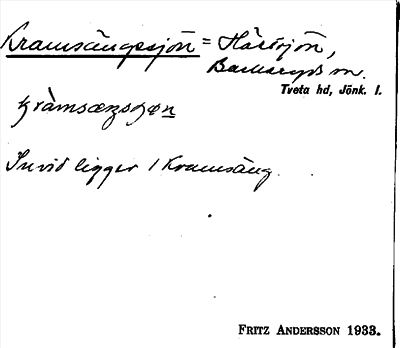 Kramsängesjön = Härsjön,
Barkeryds sn.
Tveta hd, Jönk. l.
kràmsæŋsʃøn
Invid ligger 1 Kramsäng.
FRITZ ANDERSSON 1933.